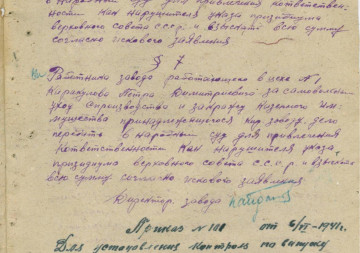 в народный суд для привлечения к ответствен-
ности как нарушителя указа президиума
верховного совета С.С.С.Р. и взыскать всю сумму
согласно искового заявления
§ 7
Работника завода работающего в цехе №1
Каракулова Петра Дмитриевича за самовольн.
уход с производства и закражу казенного им-
мущества принадлежащегося кир. заводу. дело
передать в народный суд для привлечения
к ответственности как нарушителя указа
призидиума верховного совета С.С.С.Р. и взыскать
всю сумму согласно искового заявления
Директор завода
Приказ № 100 от 6/VI-1941г.
Для установления контроля по выпуску